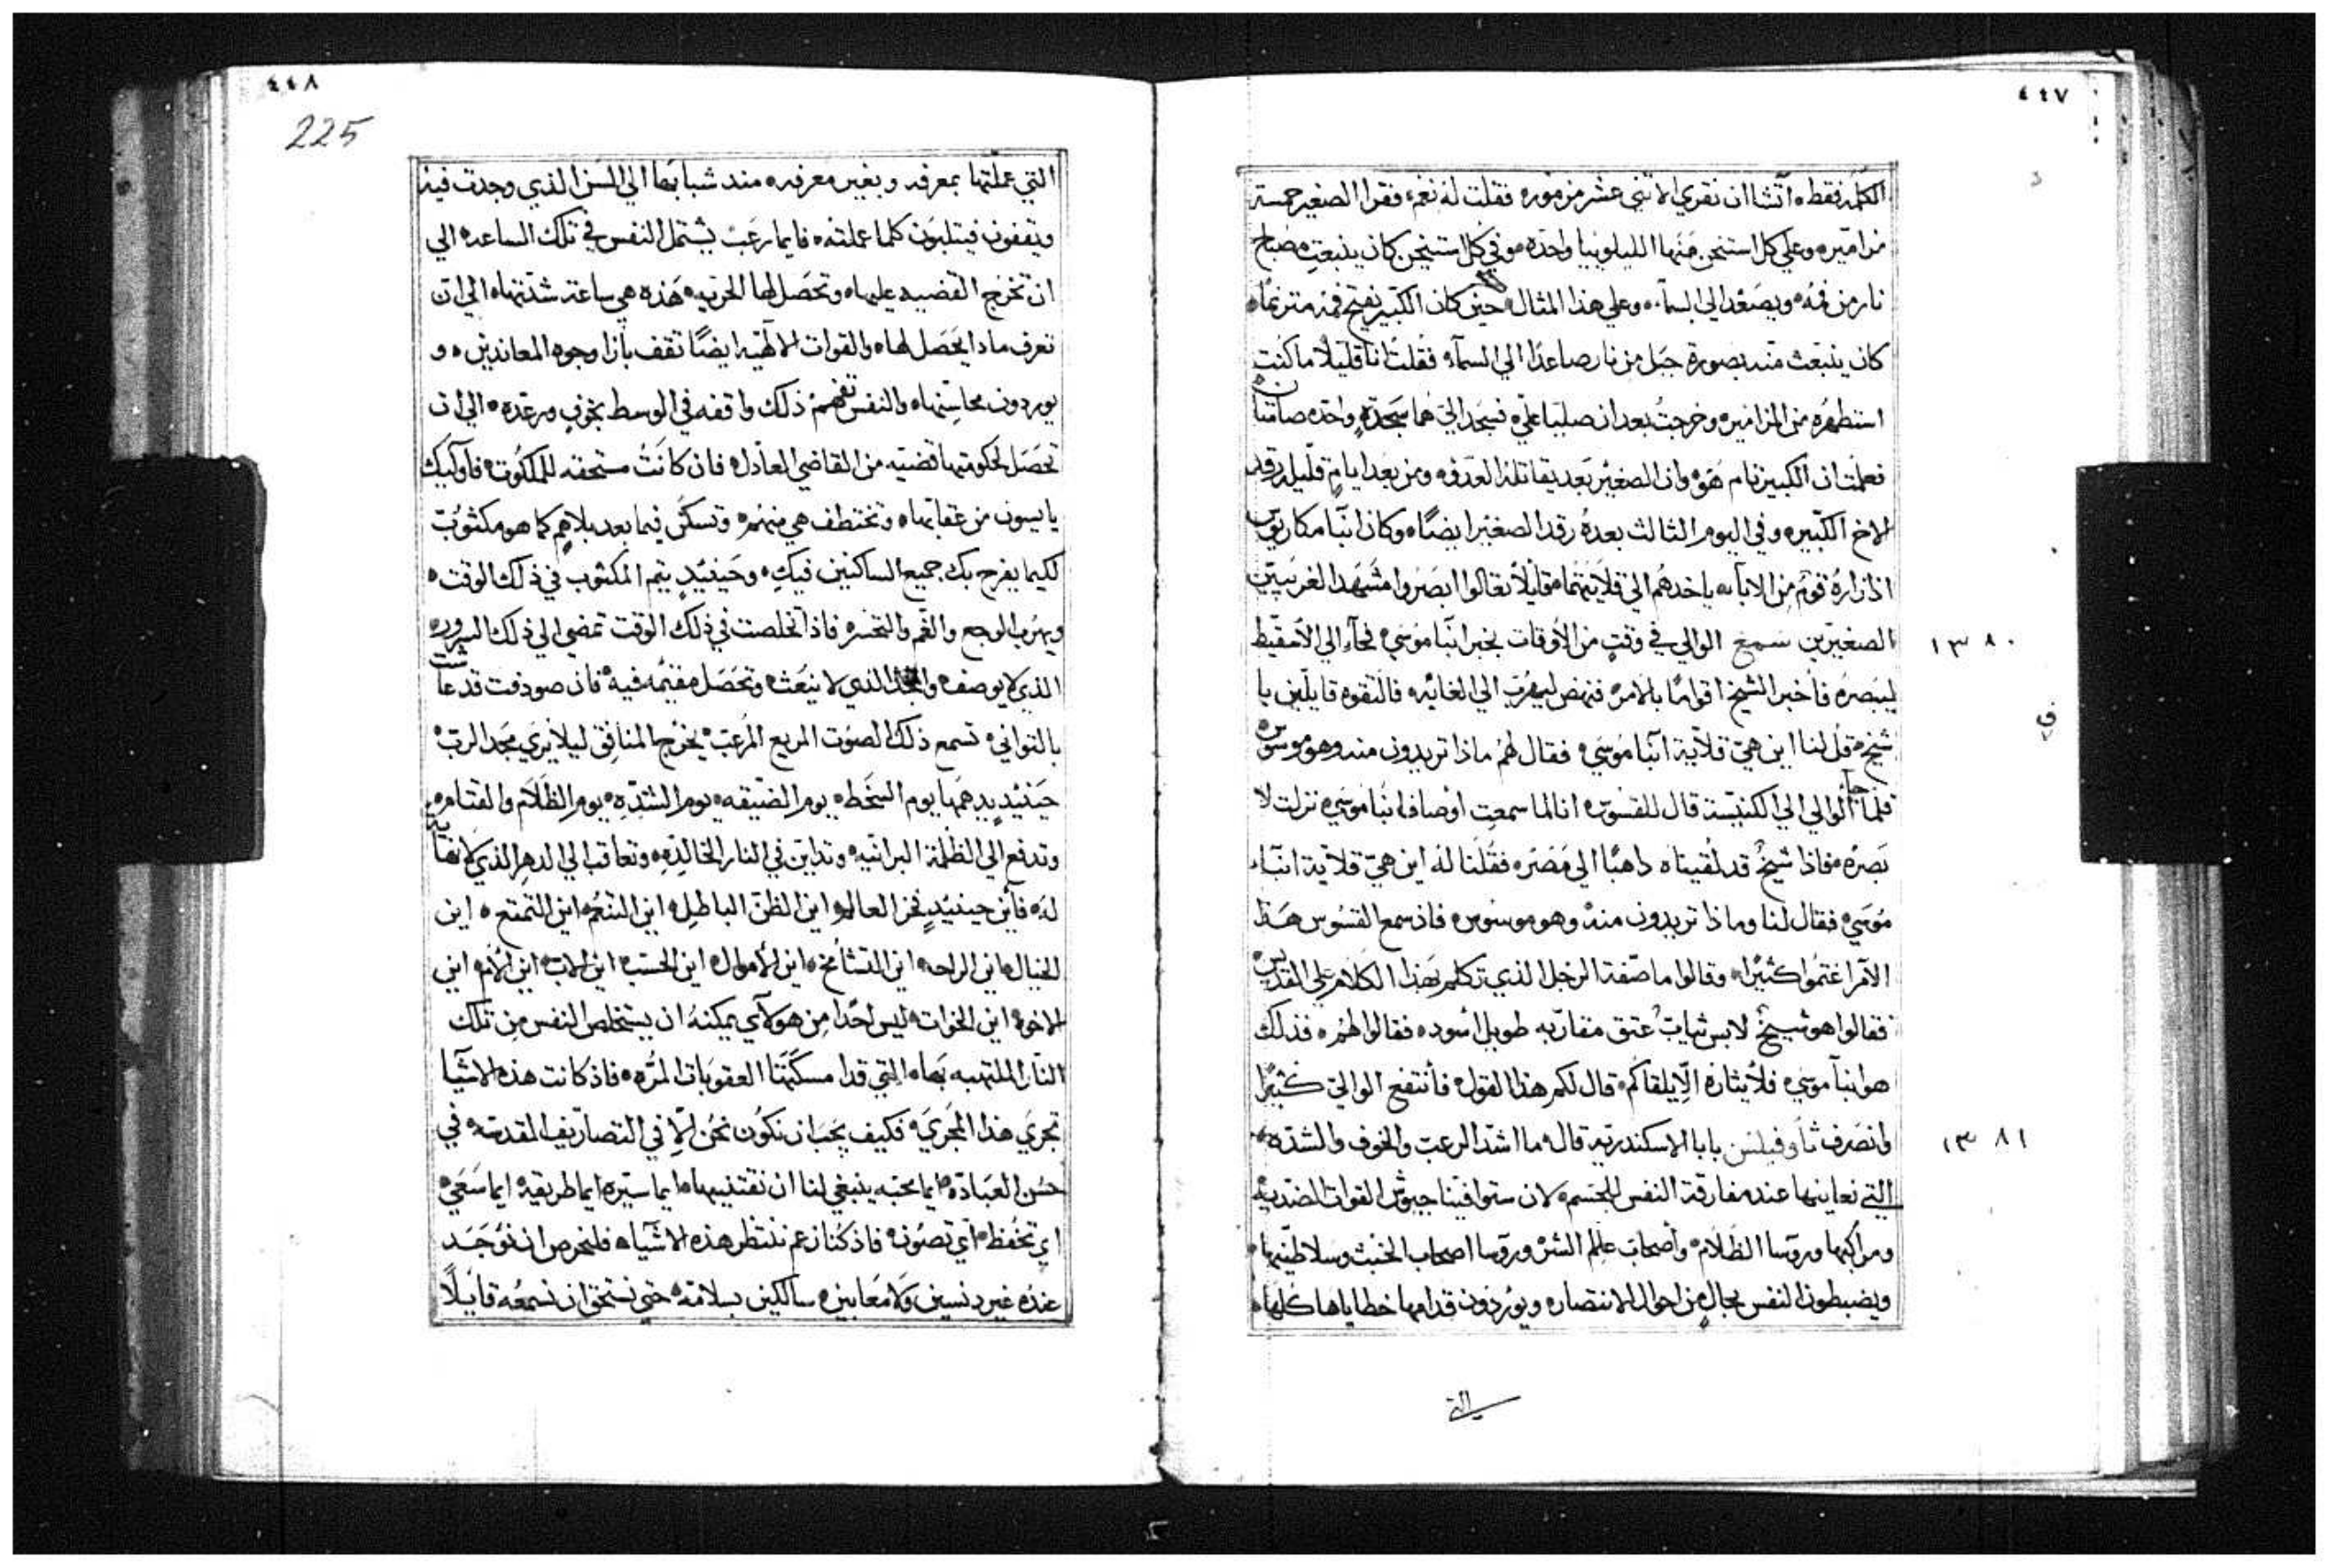 ٤٤٧
الكلمة فقط ٥ اتشا ان نقري الاثني عشر مزموره فقلت له نعم ٥ فقرا الصغير خمسة
مزاميره وعلي كل استيخن منها الليلوييا واحده ٥ وفي كل استيخن كان ينبعث مصباح
نار من فمه ٥ ويصعد الي السماء ٥ وعلي هذا المثال حين كان الكبير يفتح فمه مترنما ٥
كان ينبعث منه بصورة حبل من نار صاعدا الي السماء ٥ فقلت انا قليلا ما كنت
استظهره من المزاميره وخرجت بعد ان صليا علي ٥ فسجدا لي هما سجدة واحده صامتان
فعلمت ان الكبير تام هو ٥ وان الصغير بعد يقاتله العدو ٥ ومن بعد ايام قليله رقد
الاخ الكبيره وفي اليوم الثالث بعده رقد الصغير ايضا ٥ وكان انبا مكاريوس
اذا زاره قوم من الابا ٥ ياخدهم الي قلايتهما قايلا تعالوا ابصروا مشهد الغريبين
الصغيرين سمع الوالي في وقت من الاوقات بخبر انبا موسي ٥ فجاء الي الاسقيط
١٣٨٠
ليبصره فاخبر الشيخ اقواما بالامره فنهض ليهرب الي الغايه ٥ فالتقوه قايلين يا
شيخ ٥ قل لنا اين هي قلاية انبا موسي ٥ فقال لهم ماذا تريدون منه وهو موسوس ٥
فلما جا الوالي الي الكنيسة قال للقسوس ٥ انا لما سمعت اوصاف انبا موسي ٥ نزلت لا
بصره ٥ فاذا شيخ قد لقيناه داهبا الي مصره فقلنا له اين هي قلاية انبا
موسي ٥ فقال لنا وماذا تريدون منه ٥ وهو موسوس ٥ فاذ سمع القسوس هذا
الامر اغتموا كثيرا ٥ وقالوا ما صفة الرجل الذي تكلم بهذا الكلام علي القديس
فقالوا هو شيخ لابس ثياب عتق مقاربه طويل اسود ٥ فقالوا لهم ٥ فذلك
هو انبا موسي ٥ فلايثاره الا يلقاكم ٥ قال لكم هذا القول ٥ فانتفع الوالي كثيرا
وانصرف ثاوفيلس بابا الاسكندرية قال ٥ ما اشد الرعب والخوف والشده ٥
١٣٨١
التي نعاينها عند مفارقة النفس للجسم ٥ لان ستوافينا جيوش القوات الضديه ٥
ومراكبها وروسا الظلام ٥ واصحاب علم الشر ٥ وروسا اصحاب الخبث وسلاطينها ٥
ويضبطون النفس بحال من احوال الانتصاره ويوردون قدامها خطاياها كلها ٥
التي
٤٤٨
225
التي عملتها بمعرفه وبغير معرفه ٥ منذ شبابها الي السن الذي وجدت فيه
ويقفون فيثلبون كلما عملته ٥ فايما رعب يشتمل النفس في تلك الساعه ٥ الي
ان تخرج القضيه عليها ٥ وتحصل لها الحريه ٥ هذه هي ساعة شدتها ٥ الي ان
تعرف ماذا يحصل لها ٥ والقوات الالهيه ايضا تقف بازا وجوه المعاندين ٥ و
يوردون محاسنها ٥ والنفس تفهم ذلك واقفه في الوسط بخوف ورعده ٥ الي ان
تحصل لحكومتها قضيه من القاضي العادل ٥ فان كانت مستحقه للملكوت ٥ فاوليك
ياييسون من عقابها ٥ وتختطف هي منهم ٥ وتسكن فيما بعد بلا هم كما هو مكتوب
لكيما يفرح بك جميع الساكنين فيك ٥ وحينيذ يتم المكتوب في ذلك الوقت ٥
ويهرب الوجع والغم والتحسر ٥ فاذا تخلصت في ذلك الوقت تمضي الي ذلك السرور ٥
الذي لا يوصف ٥ والمجد الذي لا ينعت ٥ وتحصل مقيمه فيه ٥ فان صودفت قد عاشت
بالتواني ٥ تسمع ذلك الصوت المريع المرعب ٥ يخرج المنافق ليلا يري مجد الرب ٥
حينيذ يدهمها يوم السخط ٥ يوم الضيقه ٥ يوم الشده ٥ يوم الظلام والقتام ٥
وتدفع الي الظلمة البرانيه ٥ وتداين في النار الخالده ٥ وتعاقب الي الدهر الذي لا نهاية
له ٥ فاين حينيذ فخر العالم ٥ اين الظن الباطل ٥ اين التنعم ٥ اين التمتع ٥ اين
الخيال ٥ اين الراحه ٥ اين التشامخ ٥ اين الاموال ٥ اين الحسب ٥ اين الاب ٥ اين الام ٥ اين
الاخوه ٥ اين الخوات ٥ ليس احدا من هولاي يمكنه ان يستخلص النفس من تلك
النار الملتهبه بها ٥ التي قد امسكتها العقوبات المره ٥ فاذ كانت هذه الاشيا
تجري هذا المجري ٥ فكيف يجب ان نكون نحن الا في التصاريف المقدسه ٥ في
حسن العباده ٥ ايما محبه ينبغي لنا ان نقتنيها ٥ ايما سيره ٥ ايما طريقه ٥ ايما سعي ٥
اي تحفظ ٥ اي تصون ٥ فاذ كنا نزعم ننتظر هذه الاشياه فلنحرص ان نوجد
عنده غير دنسين ولا معابين ٥ سالكين بسلامه ٥ حتي نستحق ان نسمعه قايلا